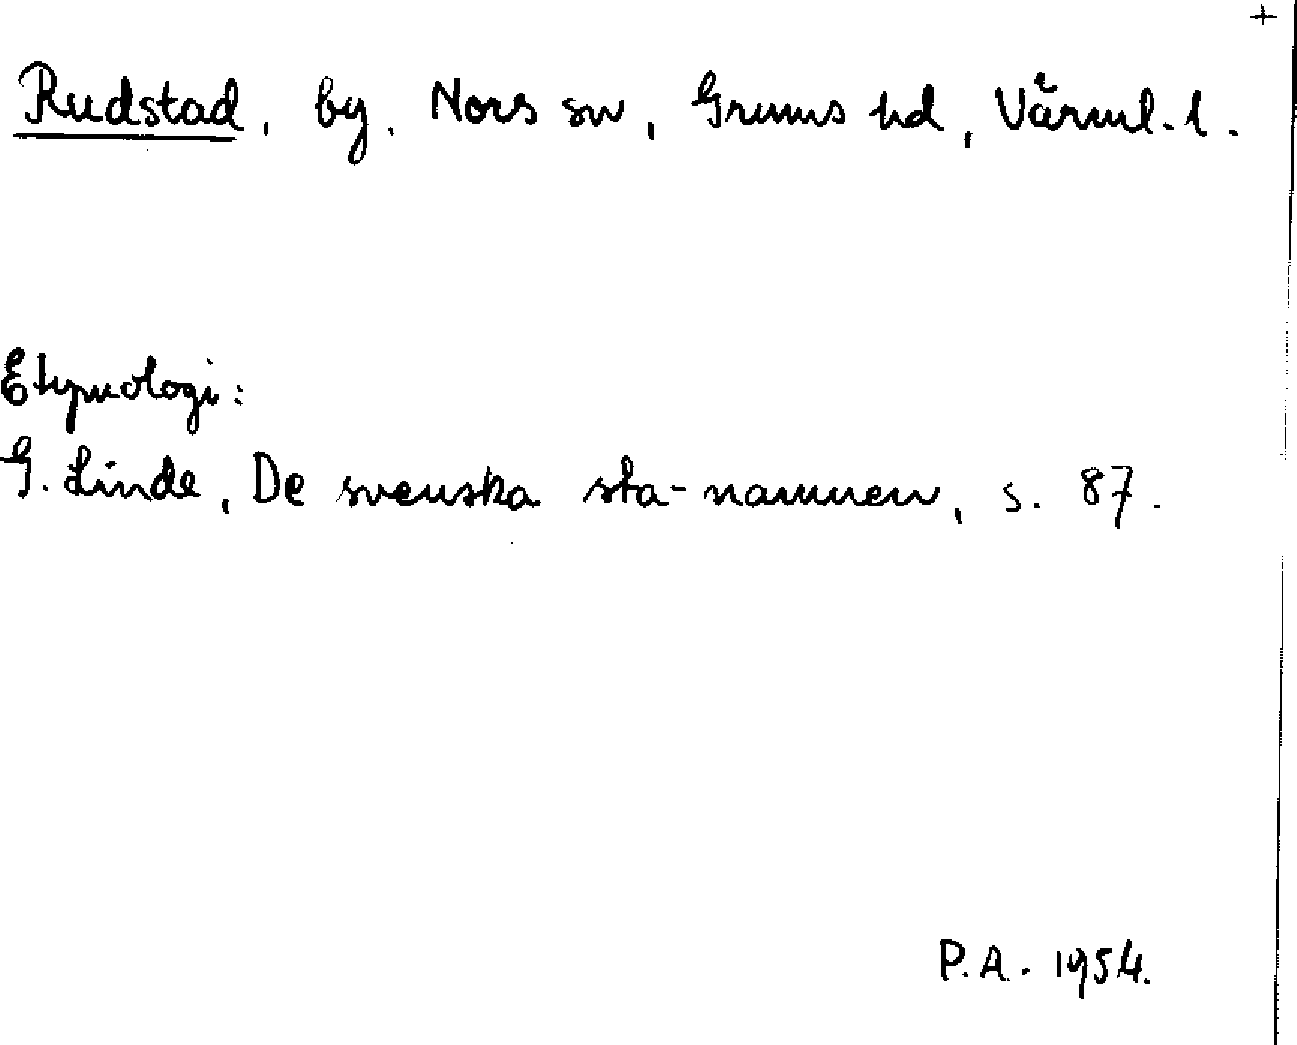 +
Rudstad, by, Nors sn, Grums hd, Värml. l.
Etymologi:
G. Linde, De svenska sta-namnen, s. 87.
P.A. 1954.